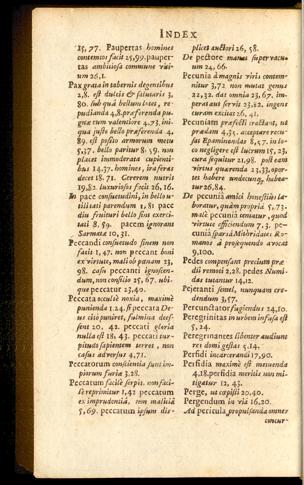 INDEX
15, 77. Paupertas homines
contemtos facit 25,99. pauper-
tas ambitiosa commune viti-
um 26.1.
Pax grata in tabernis degentibus
2,8. est dulcis & salutaris 3,
80. sub quâ bellum
pudianda 4,8. præferenda pu-
gnæ cum valentiore 4.73. ini-
qua justo bello præferenda 4,
89. est positio armorum metu
5,37. bello paritur 8. 59. non
placet immoderata cupienti-
bus 14.37. homines, ira feras
decet 18. 71. Cererem nutrit
19,82. luxuriosos facit 26, 16.
In pace consuetudini, in bello u-
tilitati parendum 1,81 pace
diu fruituri bello sint exerci-
tati 8. 59. pacem ignorant
Sarmatæ 10, 31.
Peccandi consuetudo finem non
facit 1, 47. non peccant boni
ex virtute, mali ob pœnam 23,
98. casu peccanti ignoscen-
dum, non consilio 25, 67. ubi-
que peccatur 23.40.
Peccata occultè noxia, maximè
punienda 1 24. si peccata De-
us citò puniret, fulmina deef-
sent 20, 42. peccati gloria
nulla est 18. 43. peccati tur-
pitudo sapientem terret, non
casus adversus 4.71.
Peccatorum conscientia sunt im-
piorum furiæ 3.28.
Peccatum facilè serpit. non faci-
lè reprimitur 1,42 peccatum
ex imprudentiâ, non malitiâ
5, 69. peccatum ipsum dis-
plicet auctori 26, 58.
De pectore manus supervacu-
um 24, 66.
Pecunia à magnis viris contem-
nitur 3,72 non mutat genus
22,32. dat omnia 23,67. im-
perat aut servit 23.82. ingens
curam excitat 26, 41.
Pecuniam præfecti tractent, ut
prædam 4,35. acceptare recu-
sat Epaminondas 8, 7. in lu-
co negligere est lucrum 15, 23.
cura sequitur 21.98. post eam
virtus quærenda 23,33. opor-
tet habere undecunq, habe-
tur 26,84.
De pecunia amici honestiùs la-
boratur, quàm propria 5, 73.
malè pecunia tenuatur, quod
virtute officiendum 7, 3. pe-
cuniâ sparsâ Mithridates Ro-
manos à projequendo avocat
9,100.
Pedes compensant precium præ-
dii remoti 2,28. pedes Numi-
das tutantur 14,12.
Pejeranti semel, nunquam cre-
dendum 3,57.
Percunctator fugiendus 24,10.
Peregrinitas in urbem infusa est
5, 24.
Peregrinantes libenter audiunt
rei domi gestas 5.14.
Perfidi incarcerandi 17,90.
Perfidia maximè est metuenda
4,18. perfidia meritis non mi-
tigatur 12, 43.
Perge, ut cœpisti 20,40.
Pergendum in via 16.20.
Ad pericula propulsanda omnes
concur-